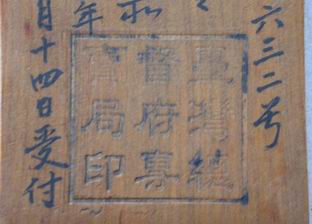 六三二号
和
年
月十四日受付
臺灣總
督府専
賣局印